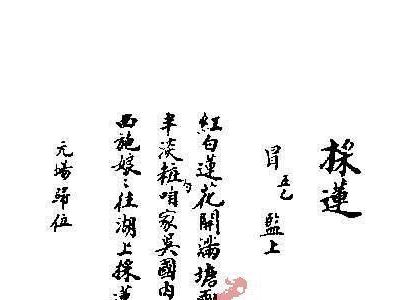 採蓮
冐 監上
紅白蓮花開滿塘
半淡粧咱家吳國内
西施娘〻往湖上採蓮
元場歸位